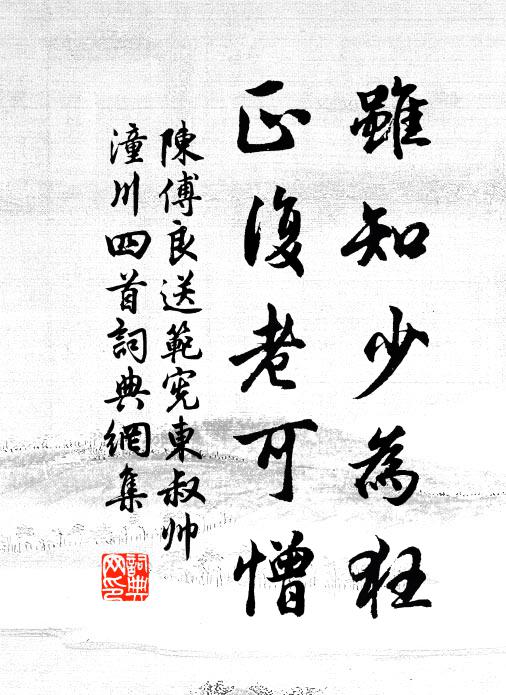 雖知少為狂
正復老可憎
陳傅良送範憲東叔帥
潼川四首詞典網集
詞典
网印